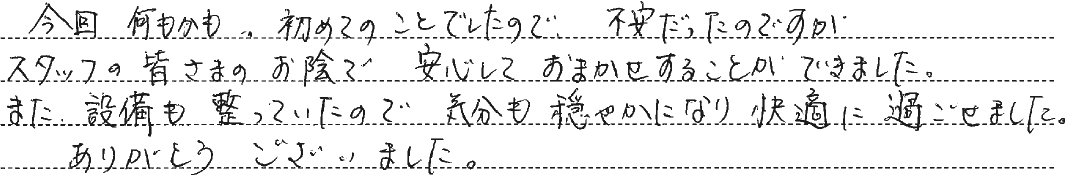 今回 何もかも、初めてのことでしたので、不安だったのですが
スタッフの皆さまのお陰で 安心しておまかせすることができました。
また、設備も整っていたので 気分も穏やかになり快適に過ごせました。
ありがとうございました。